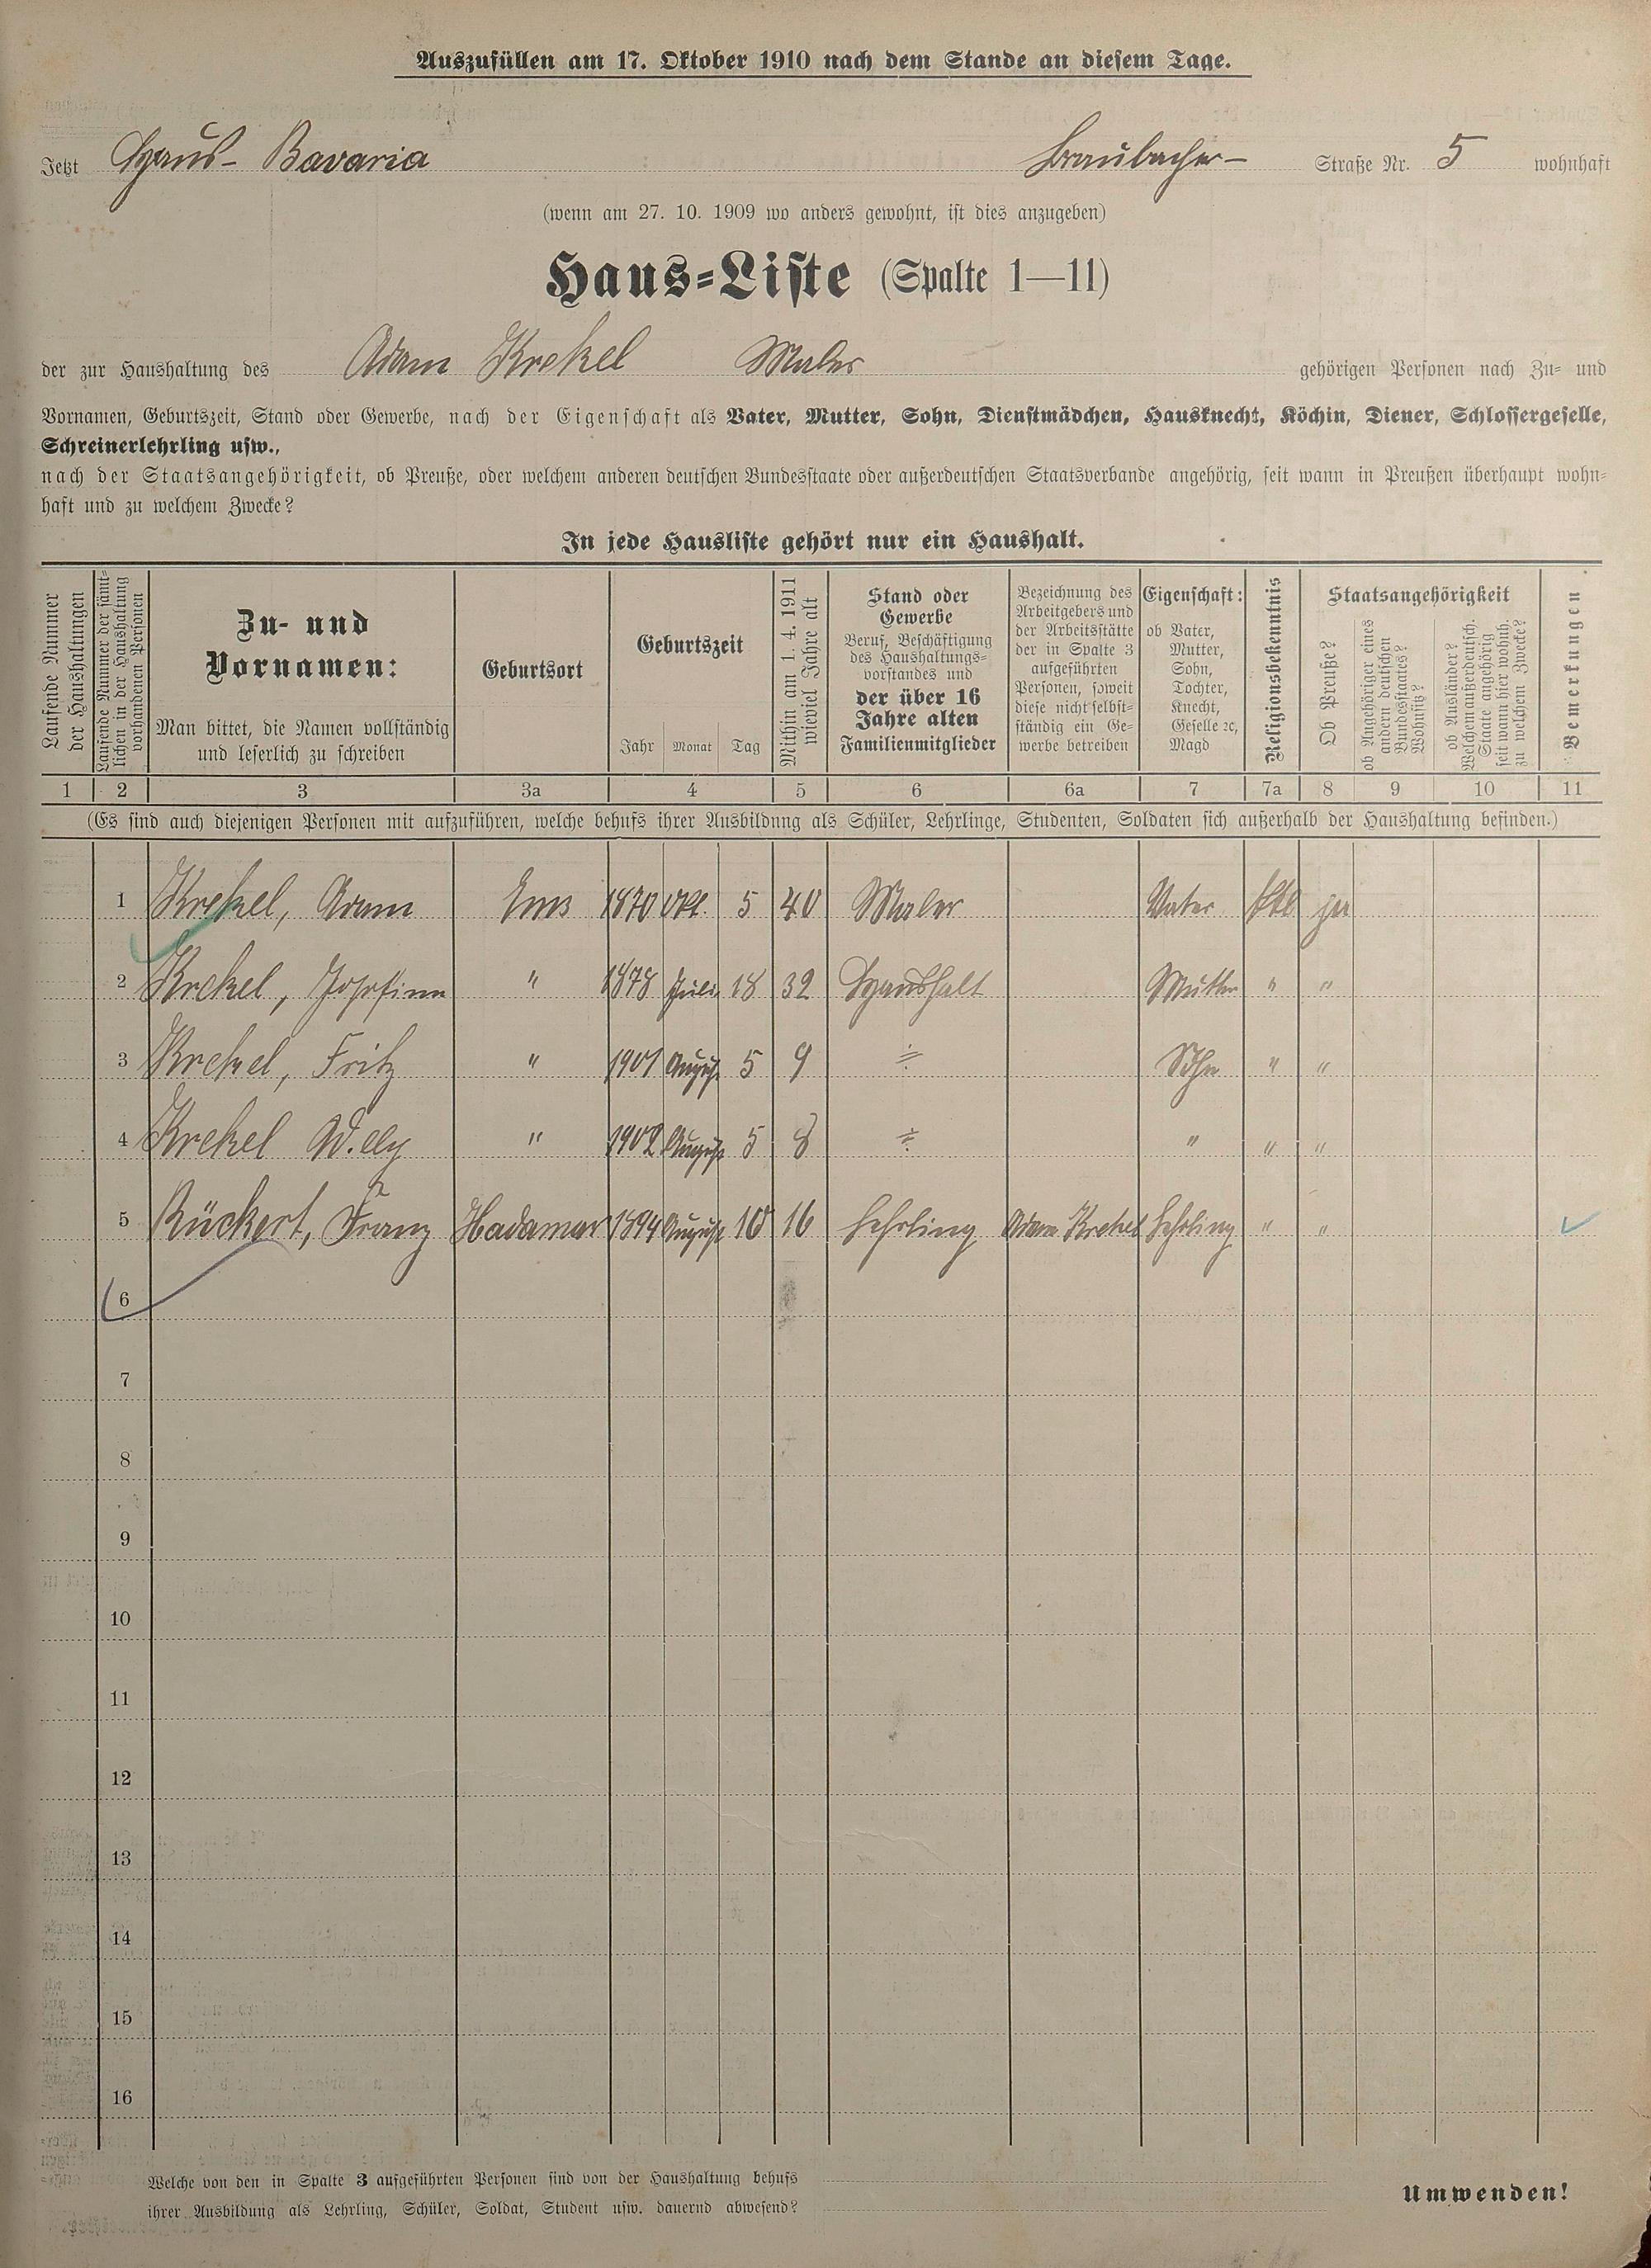 Auszufüllen am 17. Oktober 1910 nach dem Stande an diesem Tage.
Jetzt Haus- Bavaria Braubacher- Straße Nr. 5 wohnhaft
(wenn am 27. 10. 1909 wo anders gewohnt, ist dies anzugeben)
Haus-Liste (Spalte 1—11)
der zur Haushaltung des Adam Krekel Maler gehörigen Personen nach Zu- und
Vornamen, Geburtszeit, Stand oder Gewerbe, nach der Eigenschaft als Vater, Mutter, Sohn, Dienstmädchen, Hausknecht, Köchin, Diener, Schlossergeselle,
Schreinerlehrling usw.,
nach der Staatsangehörigkeit, ob Preuße, oder welchem anderen deutschen Bundesstaate oder außerdeutschen Staatsverbande angehörig, seit wann in Preußen überhaupt wohn-
haft und zu welchem Zwecke?
In jede Hausliste gehört nur ein Haushalt.
Laufende Nummer
der Haushaltungen
Laufende Nummer der sämt-
lichen in der Haushaltung
vorhandenen Personen
Zu- und
Vornamen:
Man bittet, die Namen vollständig
und leserlich zu schreiben
Geburtsort
Geburtszeit
Jahr Monat Tag
Mithin am 1. 4. 1911
wieviel Jahre alt
Stand oder
Gewerbe
Beruf, Beschäftigung
des Haushaltungs-
vorstandes und
der über 16
Jahre alten
Familienmitglieder
Bezeichnung des
Arbeitgebers und
der Arbeitsstätte
der in Spalte 3
aufgeführten
Personen, soweit
diese nicht selbst-
ständig ein Ge-
werbe betreiben
Eigenschaft:
ob Vater,
Mutter,
Sohn,
Tochter,
Knecht,
Geselle ꝛc,
Magd
Religionsbekenntnis
Staatsangehörigkeit
Ob Preuße?
ob Angehöriger eines
andern deutschen
Bundesstaates?
Wohnsitz?
ob Ausländer?
Welchem außerdeutsch.
Staate angehörig
seit wann hier wohnh.
zu welchem Zwecke?
Bemerkungen
1 2 3 3a 4 5 6 6a 7 7a 8 9 10 11
(Es sind auch diejenigen Personen mit aufzuführen, welche behufs ihrer Ausbildung als Schüler, Lehrlinge, Studenten, Soldaten sich außerhalb der Haushaltung befinden.)
1 Krekel, Adam Ems 1870 Okt. 5 40 Maler Vater kth ja
2 Krekel, Josefine " 1878 Juli 18 32 Haushalt Mutter " "
3 Krekel, Fritz " 1901 August 5 9 Sohn " "
4 Krekel " 1902 August 5 8 " " "
5 Rückert, Franz Hadamar 1894 August 10 16 Lehrling Adam Krekel Lehrling " "
6
7
8
9
10
11
12
13
14
15
16
Welche von den in Spalte 3 aufgeführten Personen sind von der Haushaltung behufs
ihrer Ausbildung als Lehrling, Schüler, Soldat, Student usw. dauernd abwesend?
Umwenden!